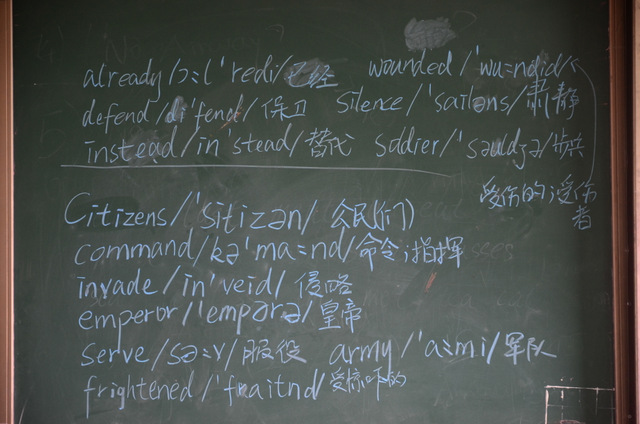 already /ɔ:l'redi/ 已经 wounded /'wu:ndid/
defend /di'fend/ 保卫 silence /'sailəns/ 肃静
instead /in'stead/ 替代 soldier /'səuldʒə/ 步兵
受伤的;受伤者
Citizens /'sitizən/ 公民(们)
command /kə'ma:nd/ 命令;指挥
invade /in'veid/ 侵略
emperor /'empərə/ 皇帝
serve /sə:v/ 服役 army /'a:mi/ 军队
frightened /'fraitnd/ 受惊吓的